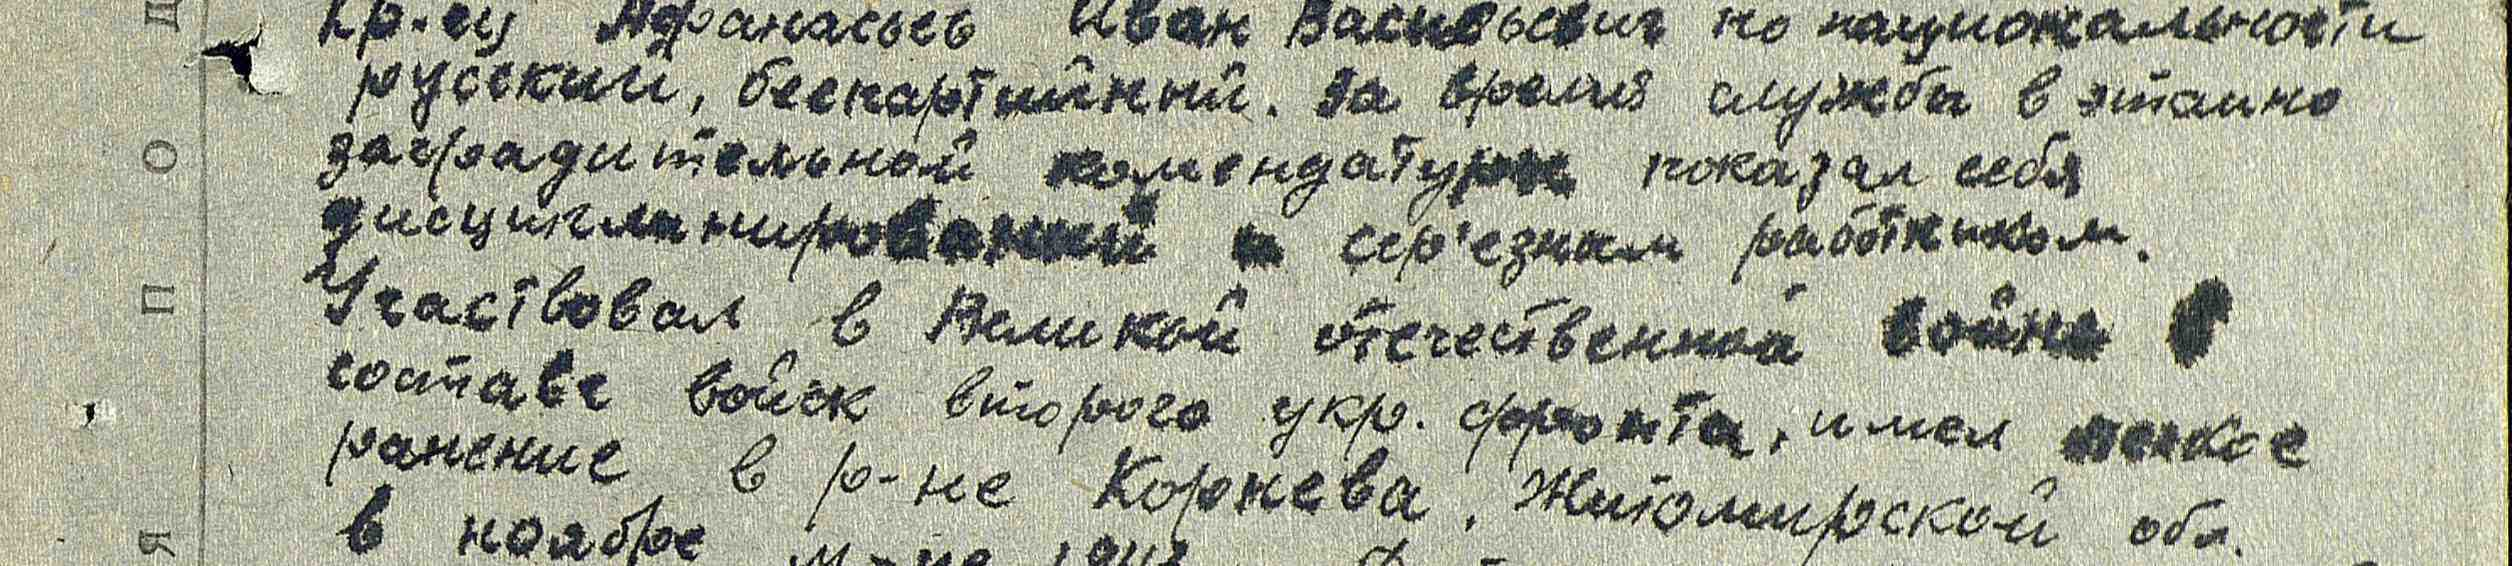 Кр-ец Афанасьев Иван Васильевич по национальности
русский, беспартийный. За время службы в этапно
заградительной комендатуры показал себя
дисциплинированый и сер'езным работником.
Участвовал в Великой отечественной войне в
составе войск второго укр. фронта, имел легкое
ранение в р-не Коржева, Житомирской обл.
в ноябре м-це 1943
П О Д
Я